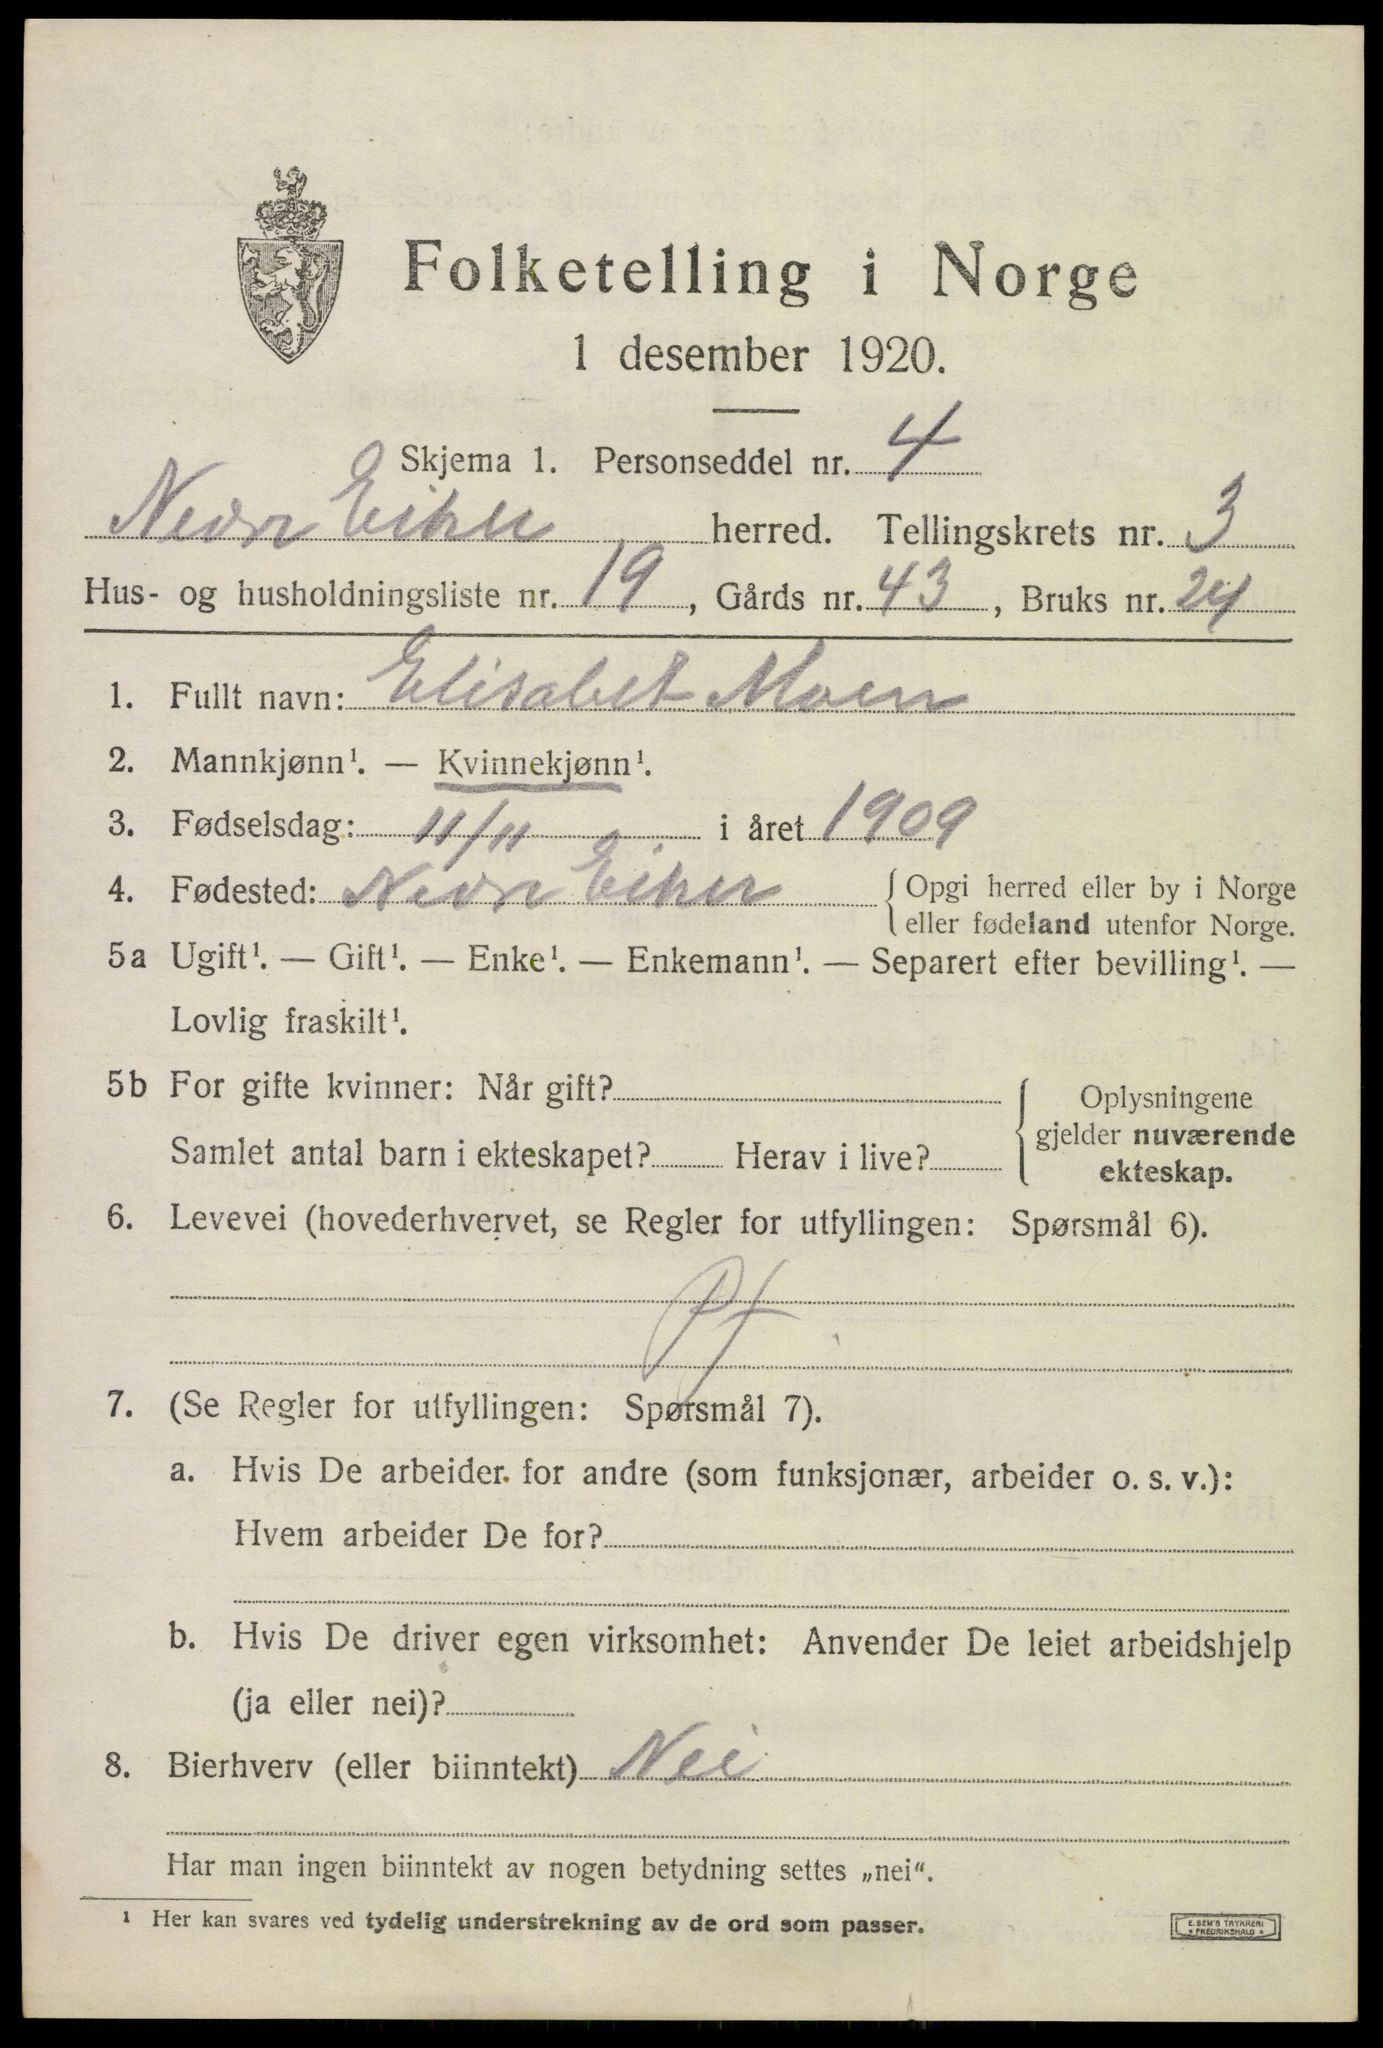 Folketelling i Norge
1 desember 1920.
Skjema 1. Personseddel nr. 4
Nedre Eiker herred. Tellingskrets nr. 3
Hus- og husholdningsliste nr. 19, Gårds nr. 43, Bruks nr. 24
1. Fullt navn: Elisabet Moen
2. Mannkjønn¹. — Kvinnekjønn¹.
3. Fødselsdag: 11/11 i året 1909
4. Fødested: Nedre Eiker { Opgi herred eller by i Norge
eller fødeland utenfor Norge.
5a Ugift¹. — Gift¹. — Enke¹. — Enkemann¹. — Separert efter bevilling¹. —
Lovlig fraskilt¹.
5b For gifte kvinner: Når gift?
Samlet antal barn i ekteskapet? Herav i live?
Oplysningene
gjelder nuværende
ekteskap.
6. Levevei (hovederhvervet, se Regler for utfyllingen: Spørsmål 6).
7. (Se Regler for utfyllingen: Spørsmål 7).
a. Hvis De arbeider for andre (som funksjonær, arbeider o. s. v.):
Hvem arbeider De for?
b. Hvis De driver egen virksomhet: Anvender De leiet arbeidshjelp
(ja eller nei)?
8. Bierhverv (eller biinntekt) Nei
Har man ingen biinntekt av nogen betydning settes „nei“.
¹ Her kan svares ved tydelig understrekning av de ord som passer.
E. SEM'S TRYKKERI
FREDRIKSHALD